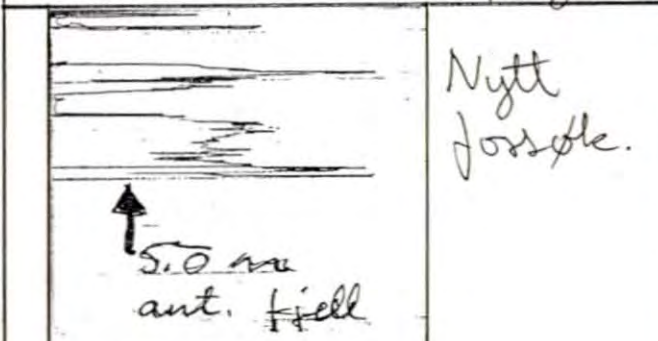 Nytt
forsøk.
5.0 m
ant. fjell